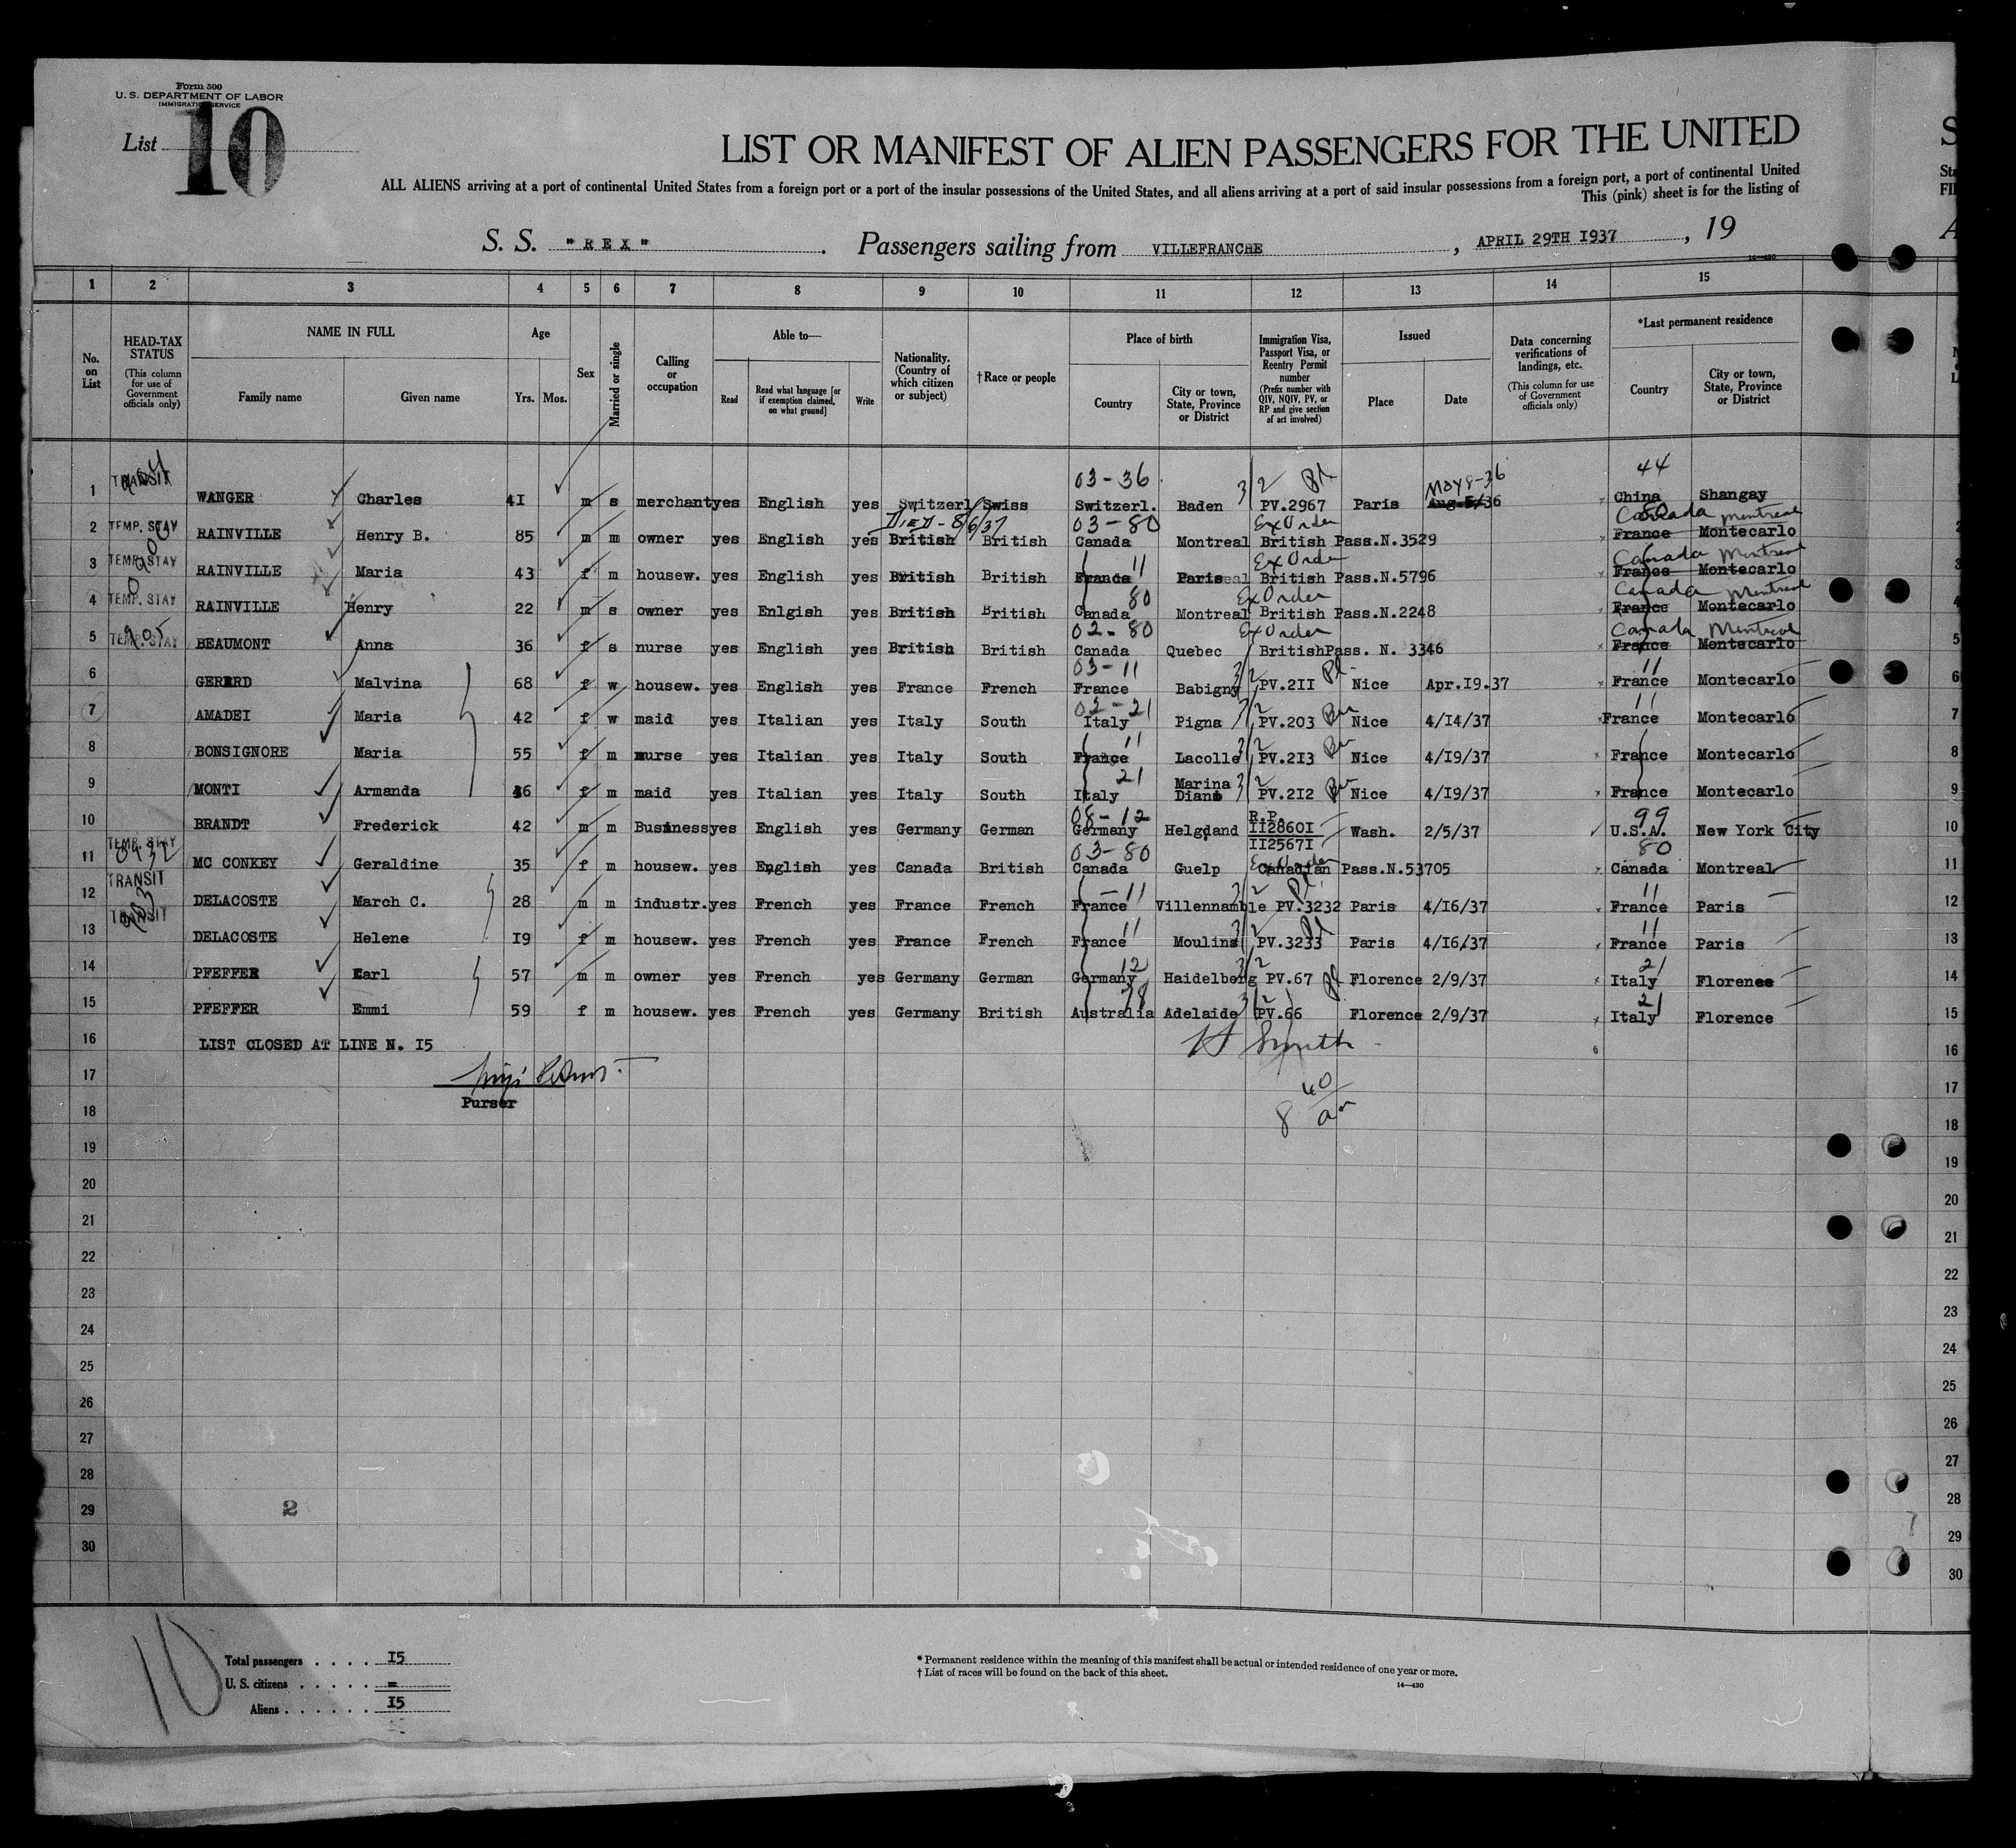 Form 500
U. S. DEPARTMENT OF LABOR
IMMIGRATION SERVICE
List 10
LIST OR MANIFEST OF ALIEN PASSENGERS FOR THE UNITED
ALL ALIENS arriving at a port of continental United States from a foreign port or a port of the insular possessions of the United States, and all aliens arriving at a port of said insular possessions from a foreign port, a port of continental United
This (pink) sheet is for the listing of
S. S. "REX" . Passengers sailing from VILLEFRANCHE , APRIL 29TH 1937 , 19
14—430
1 2 3 4 5 6 7 8 9 10 11 12 13 14 15
No. on List
HEAD-TAX STATUS (This column for use of Government officials only)
NAME IN FULL
Family name Given name
Age Yrs. Mos.
Sex
Married or single
Calling or occupation
Able to— Read Read what language [or if exemption claimed, on what ground] Write
Nationality. (Country of which citizen or subject)
†Race or people
Place of birth Country City or town, State, Province or District
Immigration Visa, Passport Visa, or Reentry Permit number (Prefix number with QIV, NQIV, PV, or RP and give section of act involved)
Issued Place Date
Data concerning verifications of landings, etc. (This column for use of Government officials only)
*Last permanent residence Country City or town, State, Province or District
03-36 May 8-36 44
1 TRANSIT WANGER Charles 41 m s merchant yes English yes Switzerl Swiss Switzerl. Baden 3/2 PV.2967 Paris Aug.5/36 China Shangay
DIED-8/6/37 03-80 Ex Order Canada Montreal 80
2 TEMP. STAY RAINVILLE Henry B. 85 m m owner yes English yes British British Canada Montreal British Pass.N.3529 France Montecarlo
11 Ex Order Canada Montreal
3 TEMP. STAY RAINVILLE Maria 43 f m housew. yes English yes British British France Pariseal British Pass.N.5796 France Montecarlo
80 Ex Order Canada Montreal
4 TEMP. STAY RAINVILLE Henry 22 m s owner yes Enlgish yes British British Canada Montreal British Pass.N.2248 France Montecarlo
02-80 Ex Order Canada Montreal
5 TEMP. STAY BEAUMONT Anna 36 f s nurse yes English yes British British Canada Quebec BritishPass. N. 3346 France Montecarlo
03-11 11
6 GERARD Malvina 68 f w housew. yes English yes France French France Babigny 3/2 PV.211 Nice Apr.19.37 France Montecarlo
02-21 11
7 AMADEI Maria 42 f w maid yes Italian yes Italy South Italy Pigna 3/2 PV.203 Nice 4/14/37 France Montecarlo
11
8 BONSIGNORE Maria 55 f m nurse yes Italian yes Italy South France Lacolle 3/2 PV.213 Nice 4/19/37 France Montecarlo
21
9 MONTI Armanda 36 f m maid yes Italian yes Italy South Italy Marina Diano 3/2 PV.212 Nice 4/19/37 France Montecarlo
08-12 99
10 BRANDT Frederick 42 m m Business yes English yes Germany German Germany Helgoland R.P. 1128601 1125671 Wash. 2/5/37 U.S.A. New York City
03-80 Ex Order 80
11 TEMP. STAY MC CONKEY Geraldine 35 f m housew. yes English yes Canada British Canada Guelp Canadian Pass.N.53705 Canada Montreal
11 11
12 TRANSIT DELACOSTE March C. 28 m m industr. yes French yes France French France Villennamble 3/2 PV.3232 Paris 4/16/37 France Paris
11 11
13 TRANSIT DELACOSTE Helene 19 f m housew. yes French yes France French France Moulins 3/2 PV.3233 Paris 4/16/37 France Paris
12 21
14 PFEFFER Carl 57 m m owner yes French yes Germany German Germany Haidelberg 3/2 PV.67 Florence 2/9/37 Italy Florence
78 21
15 PFEFFER Emmi 59 f m housew. yes French yes Germany British Australia Adelaide 3/2 PV.66 Florence 2/9/37 Italy Florence
16 LIST CLOSED AT LINE N. 15 Smith
17
Purser
8 40 am
18
19
20
21
22
23
24
25
26
27
28
29 2
30
10
Total passengers . . . . 15
U. S. citizens . . . . . =
Aliens . . . . . . 15
* Permanent residence within the meaning of this manifest shall be actual or intended residence of one year or more.
† List of races will be found on the back of this sheet.
14—430